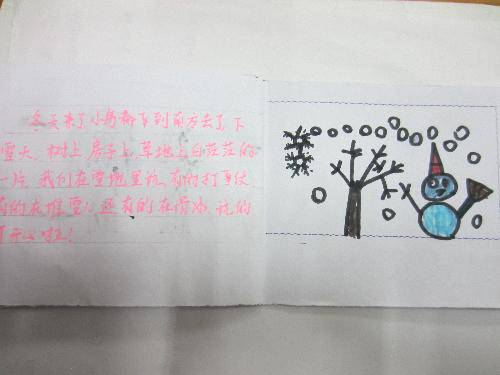 冬天来了,小鸟都飞到南方去了,下
雪天,树上,房子上,草地上白茫茫的
一片,我们在雪地里玩,有的打雪仗
有的在堆雪人,还有的在滑冰,玩的
可开心啦!